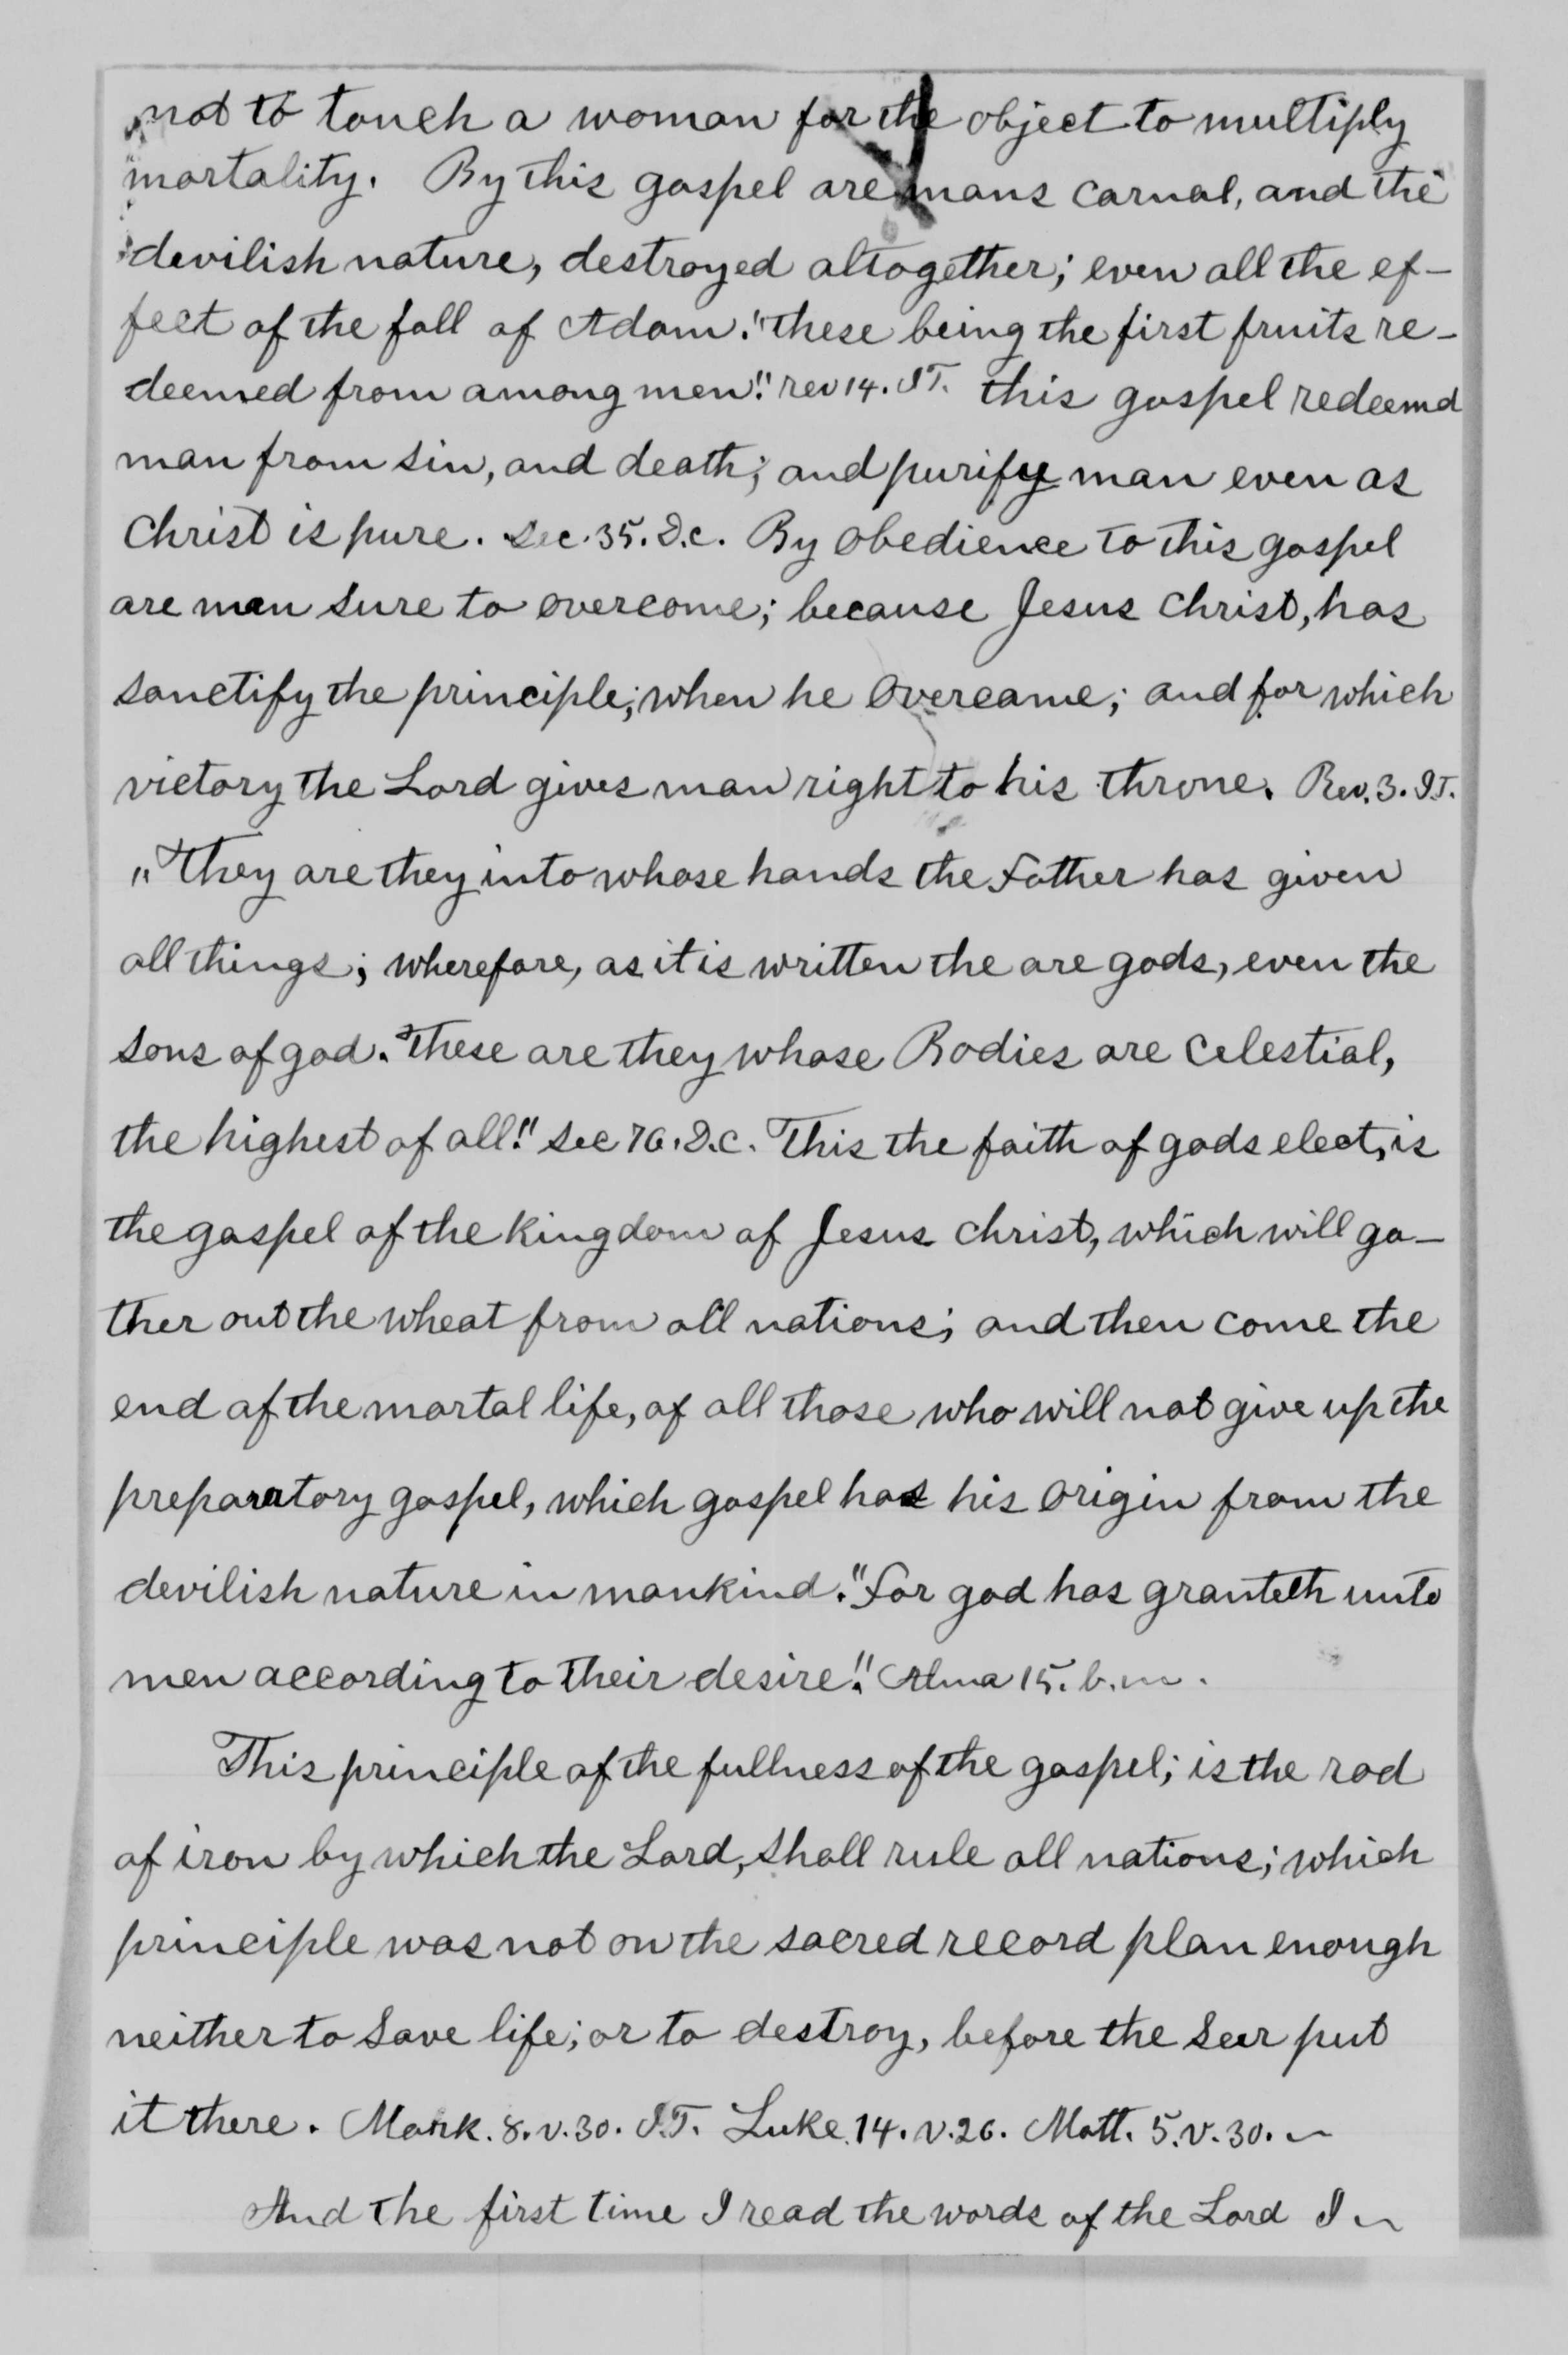 not to touch a woman for the object to multiply
mortality. By this gospel are mans carnal, and the
devilish nature, destroyed altogether; even all the ef-
fect of the fall of Adam. "these being the first fruits re-
deemed from among men." rev 14. I.T. this gospel redeemd
man from sin, and death; and purify man even as
Christ is pure. Sec. 35. D.C. By obedience to this gospel
are man sure to overcome; because Jesus Christ, has
sanctify the principle; when he overcame; and for which
victory the Lord gives man right to his throne. Rev. 3. I.T.
"They are they into whose hands the Father has given
all things; wherefore, as it is written the are gods, even the
sons of god. These are they whose Bodies are celestial,
the highest of all." Sec 76. D.C. This the faith of gods elect, is
the gospel of the kingdom of Jesus Christ, which will ga-
ther out the wheat from all nations; and then come the
end of the mortal life, of all those who will not give up the
preparatory gospel, which gospel has his origin from the
devilish nature in mankind. "For god has granteth unto
men according to their desire." Alma 15. b.m.
This principle of the fullness of the gospel; is the rod
of iron by which the Lord, shall rule all nations; which
principle was not on the sacred record plan enough
neither to save life; or to destroy, before the Seer put
it there. Mark. 8. v. 30. I.T. Luke. 14. v. 26. Matt. 5. v. 30. ~
And the first time I read the words of the Lord I ~